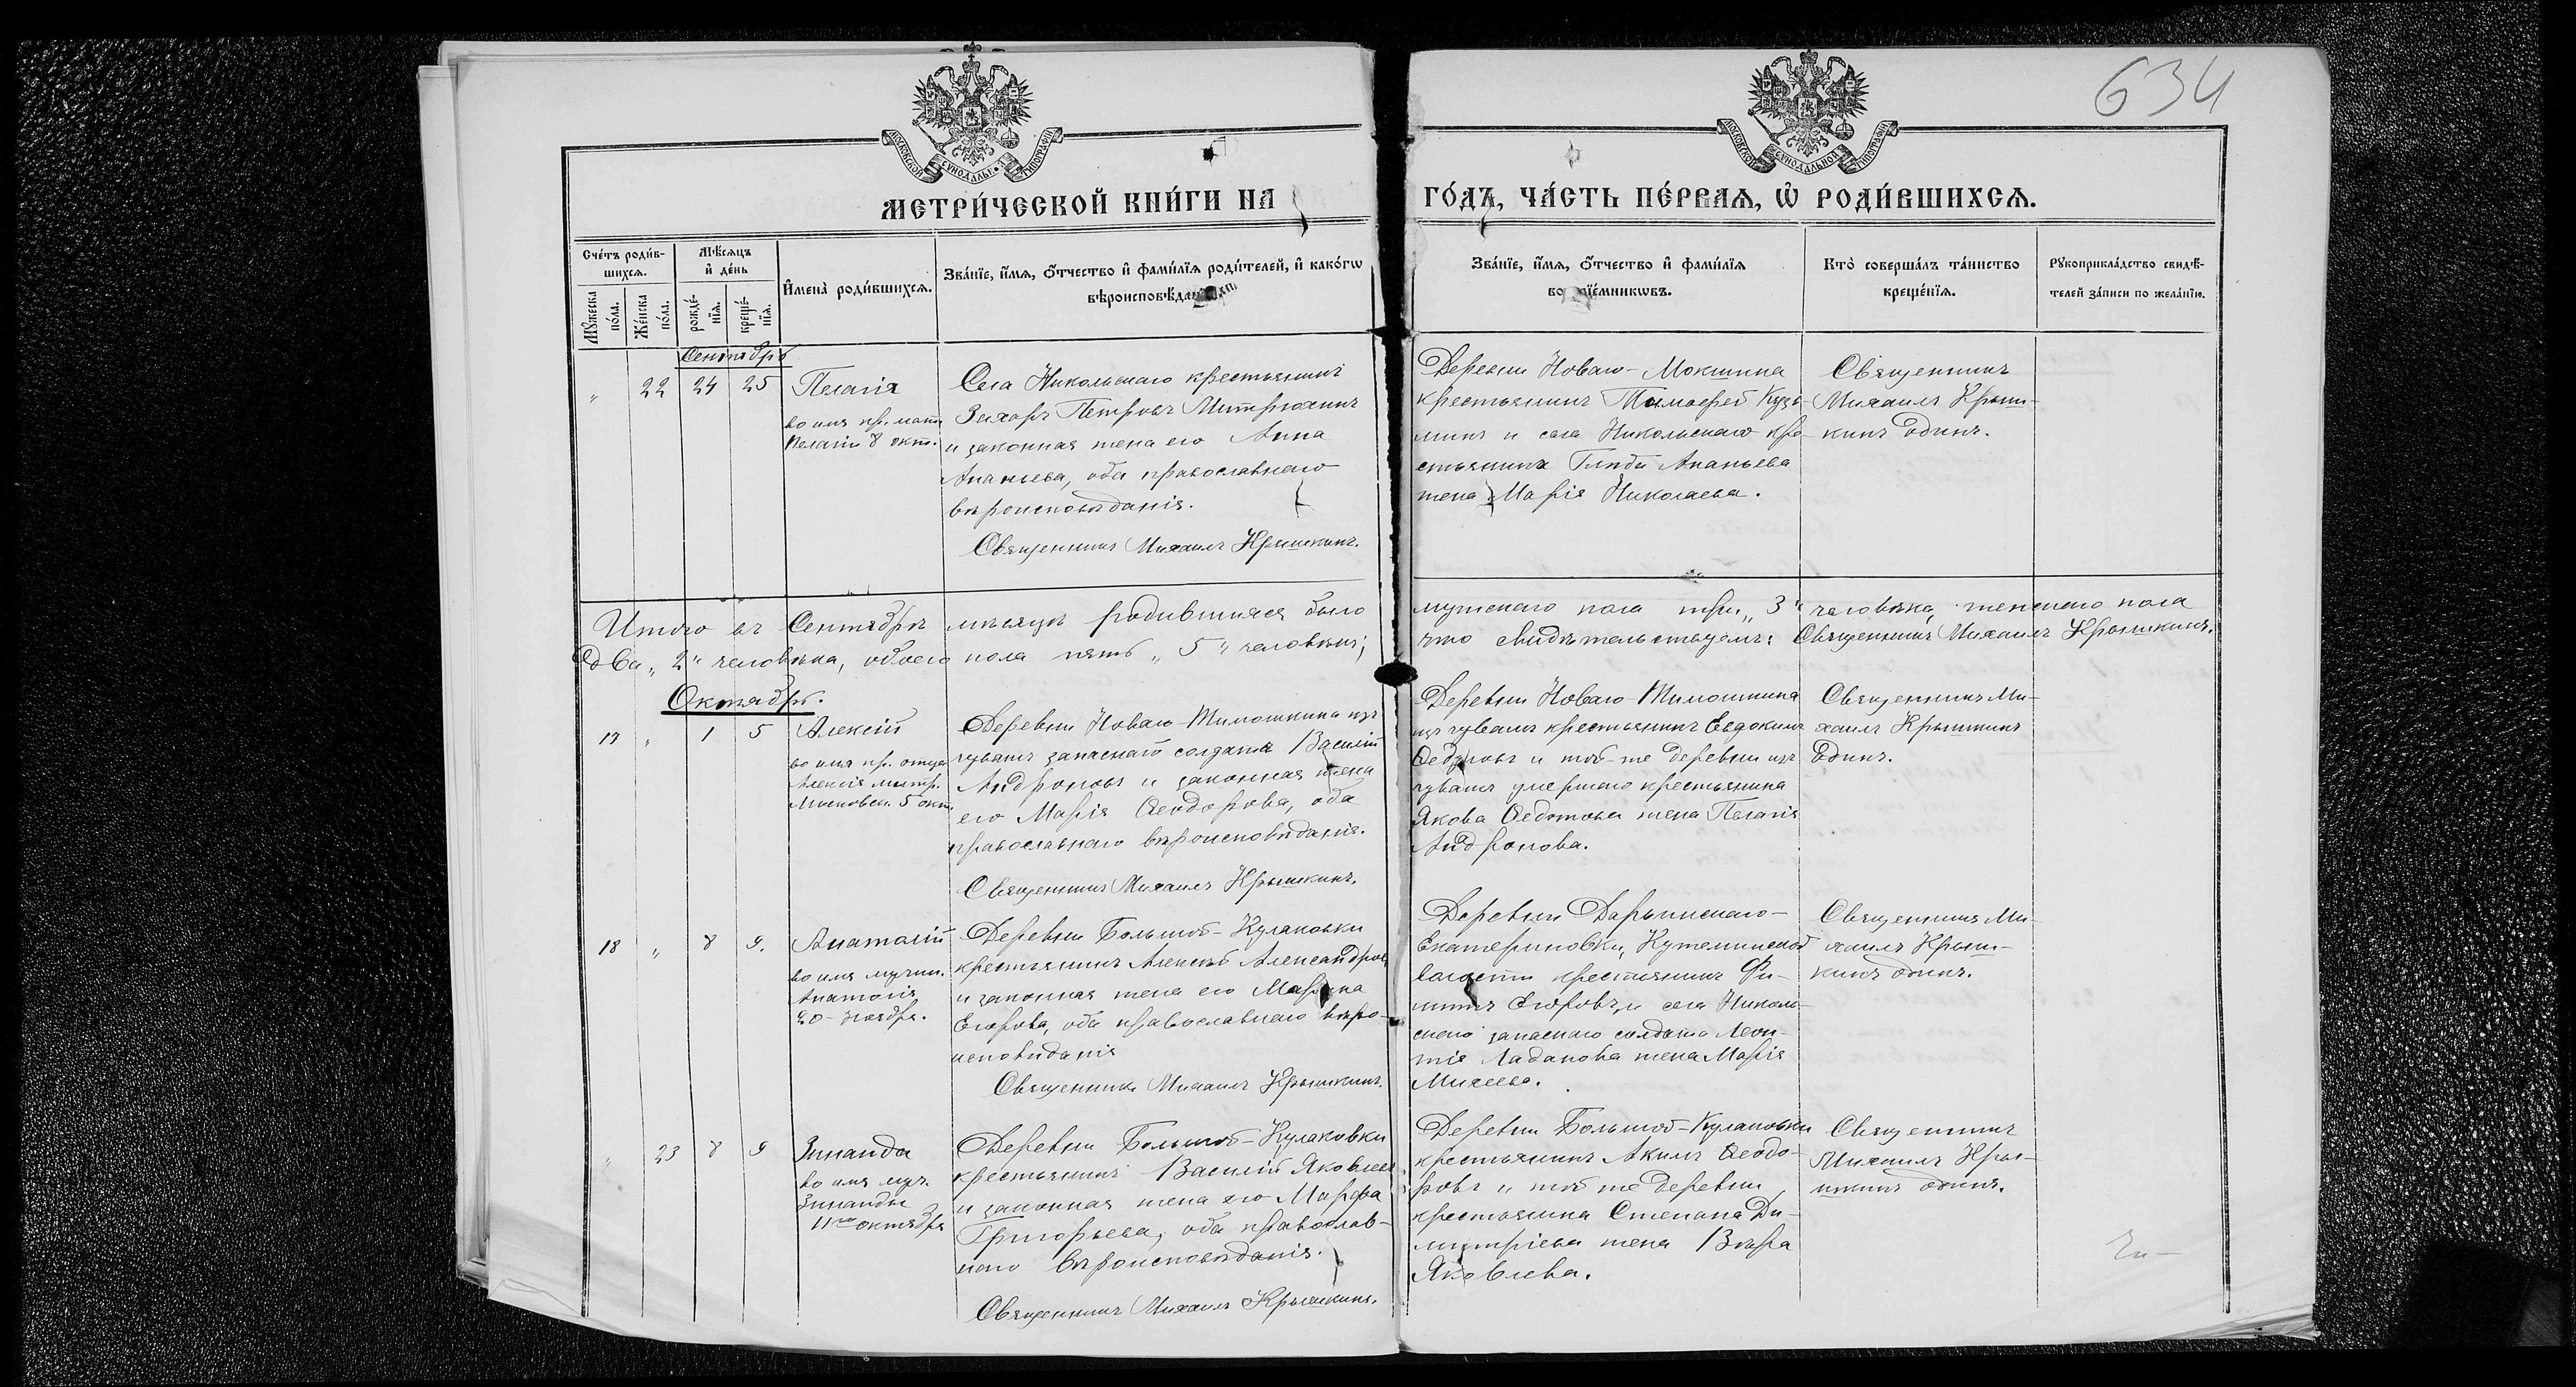 634
МОСКОВСКОЙ СУНОДАЛЬНОЙ ТИПОГРАФІИ
МОСКОВСКОЙ СУНОДАЛЬНОЙ ТИПОГРАФІИ
МЕТРИ́ЧЕСКОЙ КНИ́ГИ НА
ГО́ДЪ, ЧА́СТЬ ПЕ́РВАѦ, Ѡ РОДИ́ВШИХСѦ.
Сче́тъ роди́в-
шихсѧ.
Мꙋжеска по́ла.
Же́нска по́ла.
Мѣ́сѧцъ
и҆ де́нь
рожде́-
нїѧ.
креще́-
нїѧ.
И҆мена̀ роди́вшихсѧ.
Зва́нїе, и҆́мѧ, ѻ҆́тчество и҆ фами́лїѧ роди́телей, и҆ како́гѡ
вѣроисповѣ́данїѧ.
Зва́нїе, и҆́мѧ, ѻ҆́тчество и҆ фами́лїѧ
воспрїе́мникѡвъ.
Кто̀ соверша́лъ та́инство
креще́нїѧ.
Рꙋкоприкла́дство свидѣ́-
телей за́писи по жела́нїю.
Сентябрь
" 22 24 25
Пелагія
во имя пр. мат.
Пелагіи 8 окт.
Села Никольскаго крестьянинъ
Захаръ Петровъ Митрюхинъ
и законная жена его Анна
Ананьева, оба православнаго
вѣроисповѣданія.
Священникъ Михаилъ Крышкинъ.
Деревни Новаго-Мокшина
крестьянинъ Тимофей Кузь-
минъ и села Никольскаго кре-
стьянина Глѣба Ананьева
жена Марія Николаева.
Священникъ
Михаилъ Крыш-
кинъ один.
Итого въ Сентябрѣ мѣсяцѣ родившихся было мужескаго пола три "3" человѣка, женскаго пола
два "2" человѣка, обоего пола пять "5" человѣкъ; что свидѣтельствуемъ: Священникъ Михаилъ Крышкинъ.
Октябрь.
17 " 1 5
Алексій
во имя пр. отца
Алексія митр.
Московск. 5 окт.
Деревни Новаго-Тимошкина изъ
чувашъ запаснаго солдата Василій
Андроновъ и законная жена
его Марія Ѳеодорова, оба
православнаго вѣроисповѣданія.
Священникъ Михаилъ Крышкинъ.
Деревни Новаго-Тимошкина
изъ чувашъ крестьянинъ Евдокимъ
Ѳедоровъ и той-же деревни изъ
чувашъ умершаго крестьянина
Якова Ѳедотова жена Пелагія
Андронова.
Священникъ Ми-
хаилъ Крышкинъ
один.
18 " 8 9.
Анатолій
во имя мучен.
Анатолія
20-ноября.
Деревни Большой-Кулаковки
крестьянинъ Алексѣй Александровъ
и законная жена его Марѳа
Егорова, оба православнаго вѣро-
исповѣданія
Священникъ Михаилъ Крышкинъ.
Деревни Дарьинскаго-
Екатериновки,
волости крестьянинъ Фи-
липпъ Егоровъ, и села Николь-
скаго запаснаго солдата Леон-
тія Ладанова жена Марія
Михеева.
Священникъ Ми-
хаилъ Крыш-
кинъ один.
" 23 8 9
Зинаида
во имя муч.
Зинаиды
11го октября
Деревни Большой-Кулаковки
крестьянинъ Василій Яковлевъ
и законная жена его Марфа
Григорьева, оба православ-
наго вѣроисповѣданія.
Священникъ Михаилъ Крышкинъ.
Деревни Большой-Кулаковки
крестьянинъ Акимъ Ѳеодо-
ровъ и той же деревни
крестьянина Степана Ди-
митріева жена Вѣра
Яковлева.
Священникъ
Михаилъ Кры-
шкинъ один.